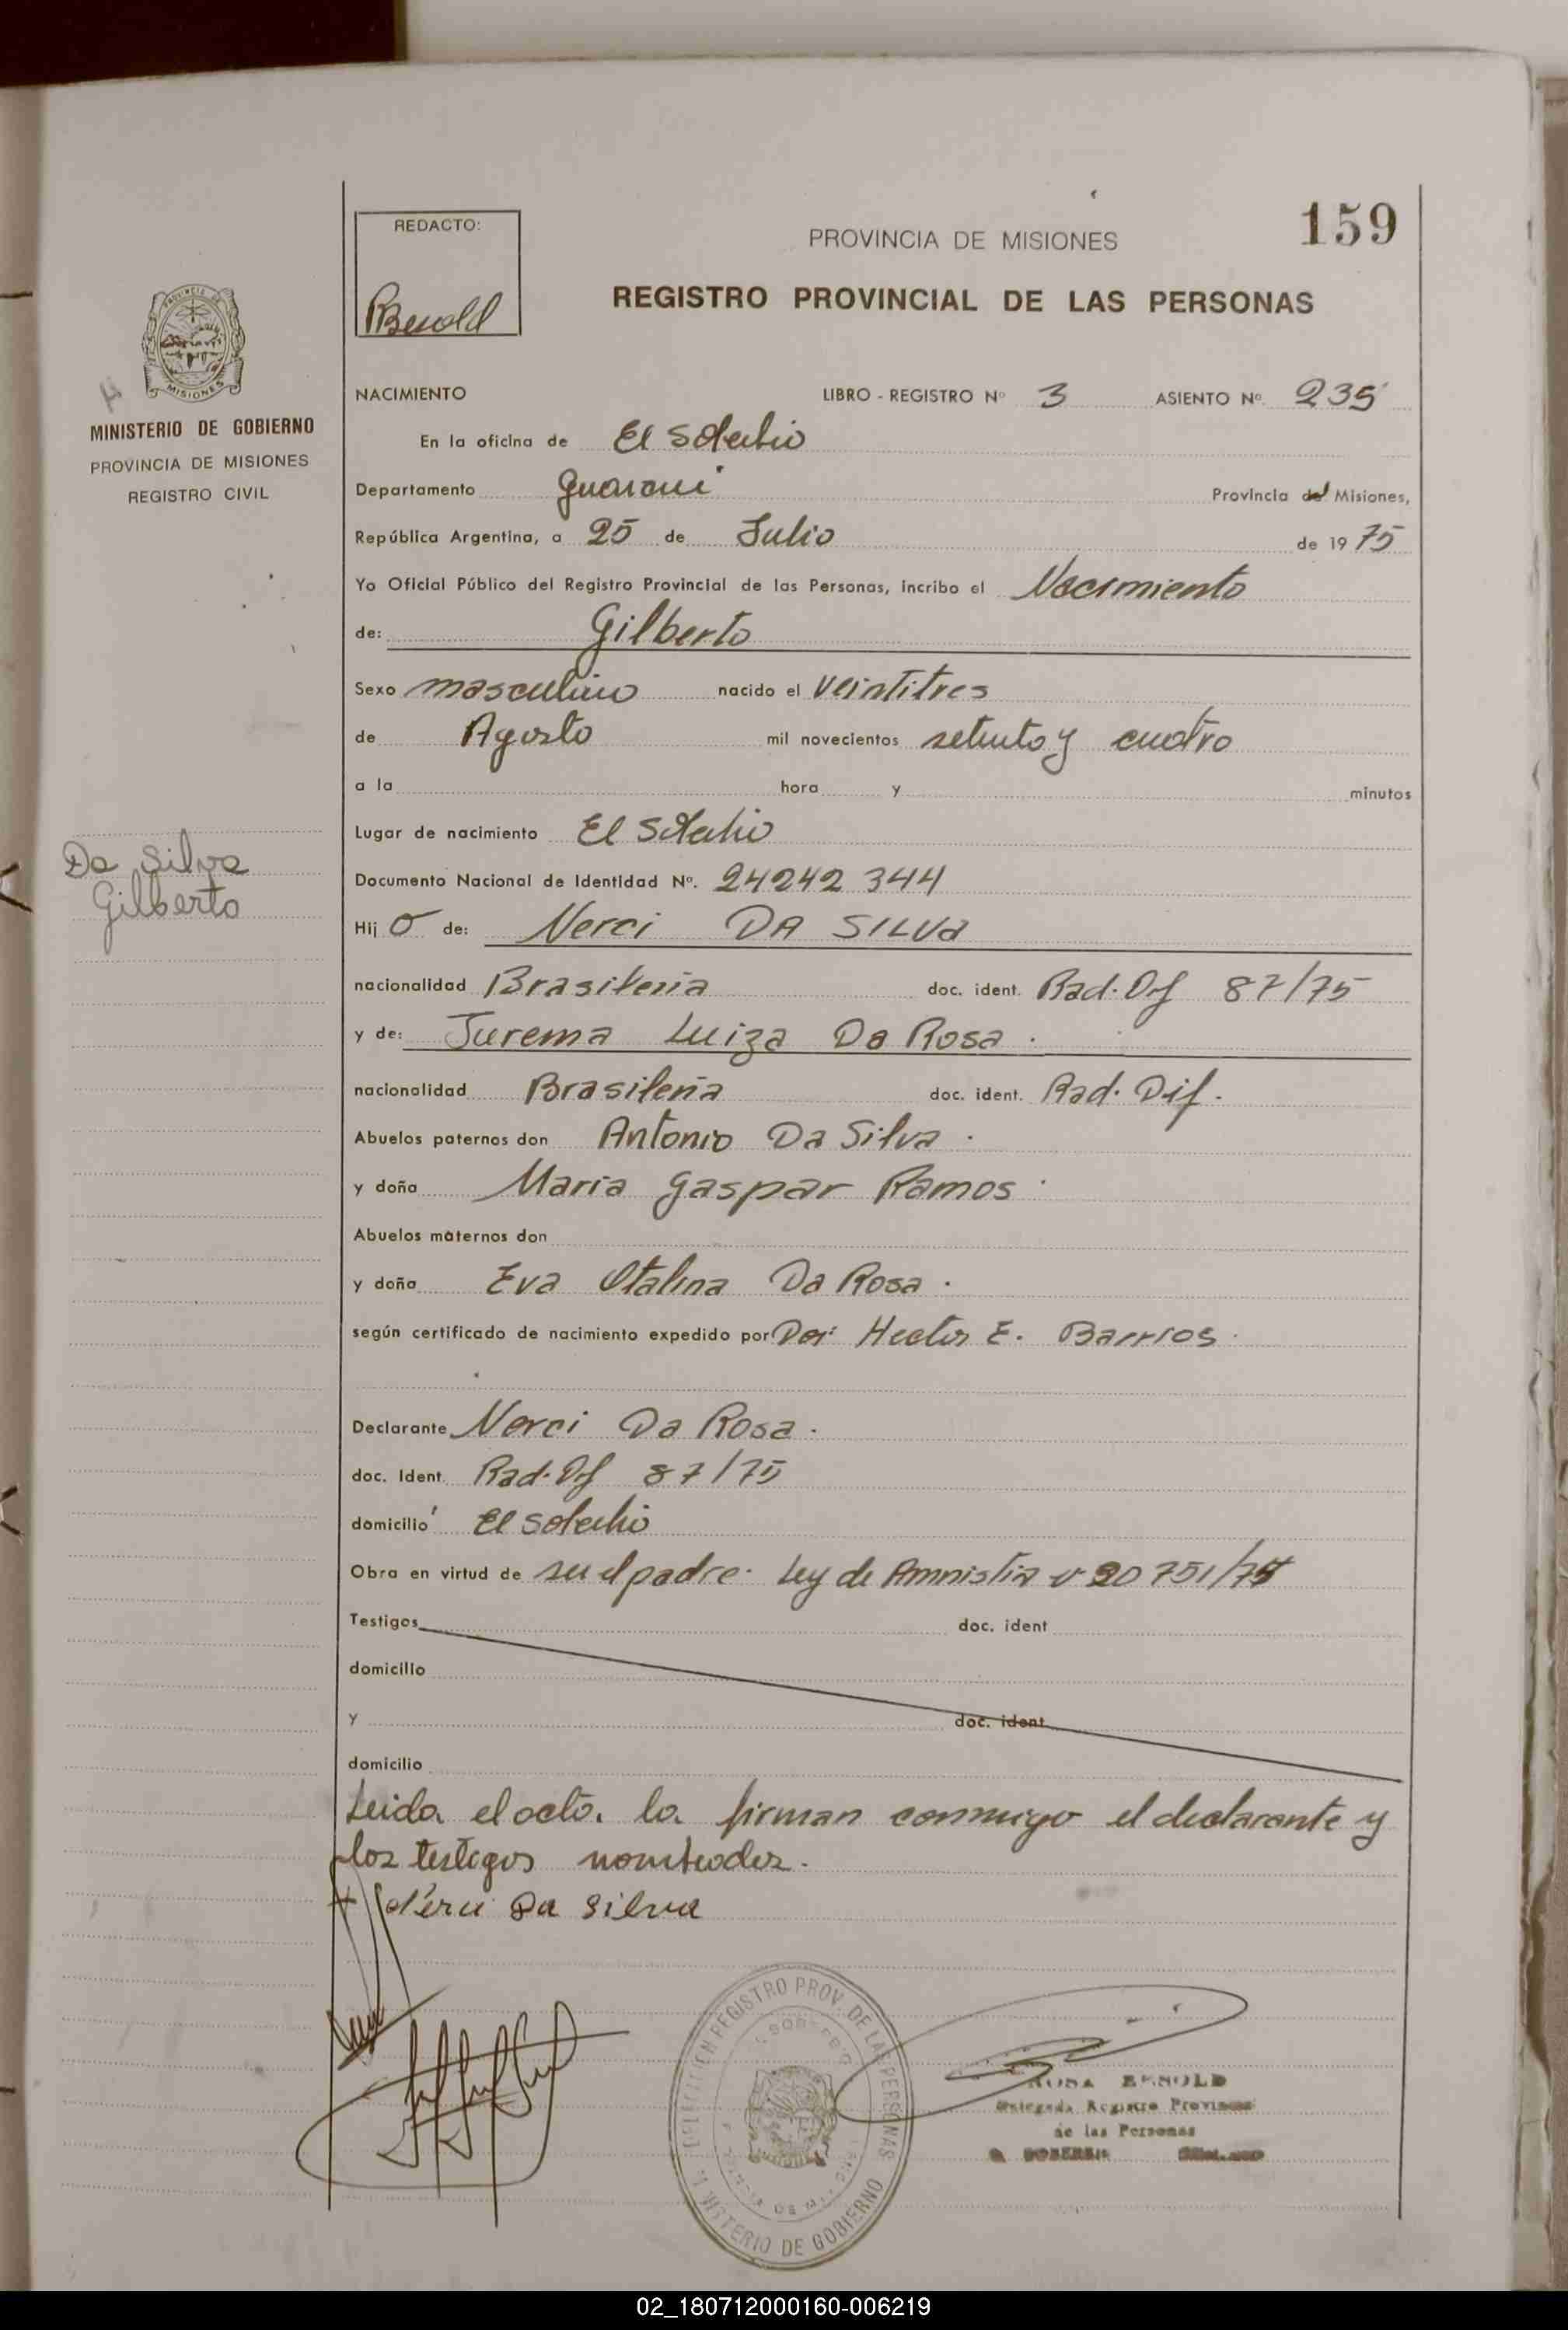 159
REDACTO:
PROVINCIA DE MISIONES
REGISTRO PROVINCIAL DE LAS PERSONAS
MISIONES
MINISTERIO DE GOBIERNO
PROVINCIA DE MISIONES
REGISTRO CIVIL
NACIMIENTO LIBRO - REGISTRO Nº 3 ASIENTO Nº 235
En la oficina de El Soberbio
Departamento Guarani Provincia de Misiones,
República Argentina, a 25 de Julio de 19 75
Yo Oficial Público del Registro Provincial de las Personas, incribo el Nacimiento
de: Gilberto
Sexo masculino nacido el veintitres
de Agosto mil novecientos setenta y cuatro
a la hora y minutos
Lugar de nacimiento El Soberbio
Da Silva
Gilberto
Documento Nacional de Identidad Nº. 24242 344
Hij o de: Nerci DA SILVa
nacionalidad Brasileña doc. ident. Rad. Dif 87/75
y de: Jurema Luiza Da Rosa.
nacionalidad Brasileña doc. ident. Rad. Dif.
Abuelos paternos don Antonio Da Silva.
y doña Maria Gaspar Ramos.
Abuelos maternos don
y doña Eva Otalina Da Rosa.
según certificado de nacimiento expedido por Hector E. Barrios.
Declarante Nerci Da Rosa.
doc. Ident. Rad. Dif 87/75
domicilio El Soberbio
Obra en virtud de ser el padre. Ley de Amnistia 20751/74
Testigos doc. ident
domicilio
y doc. ident
domicilio
Leida el acta, la firman conmigo el declarante y
los testigos nombrados.
Da Silva
DELEGACION REGISTRO PROV. DE LAS PERSONAS
MINISTERIO DE GOBIERNO
ROSA BENOLD
Delegada Registro Provincial
de las Personas